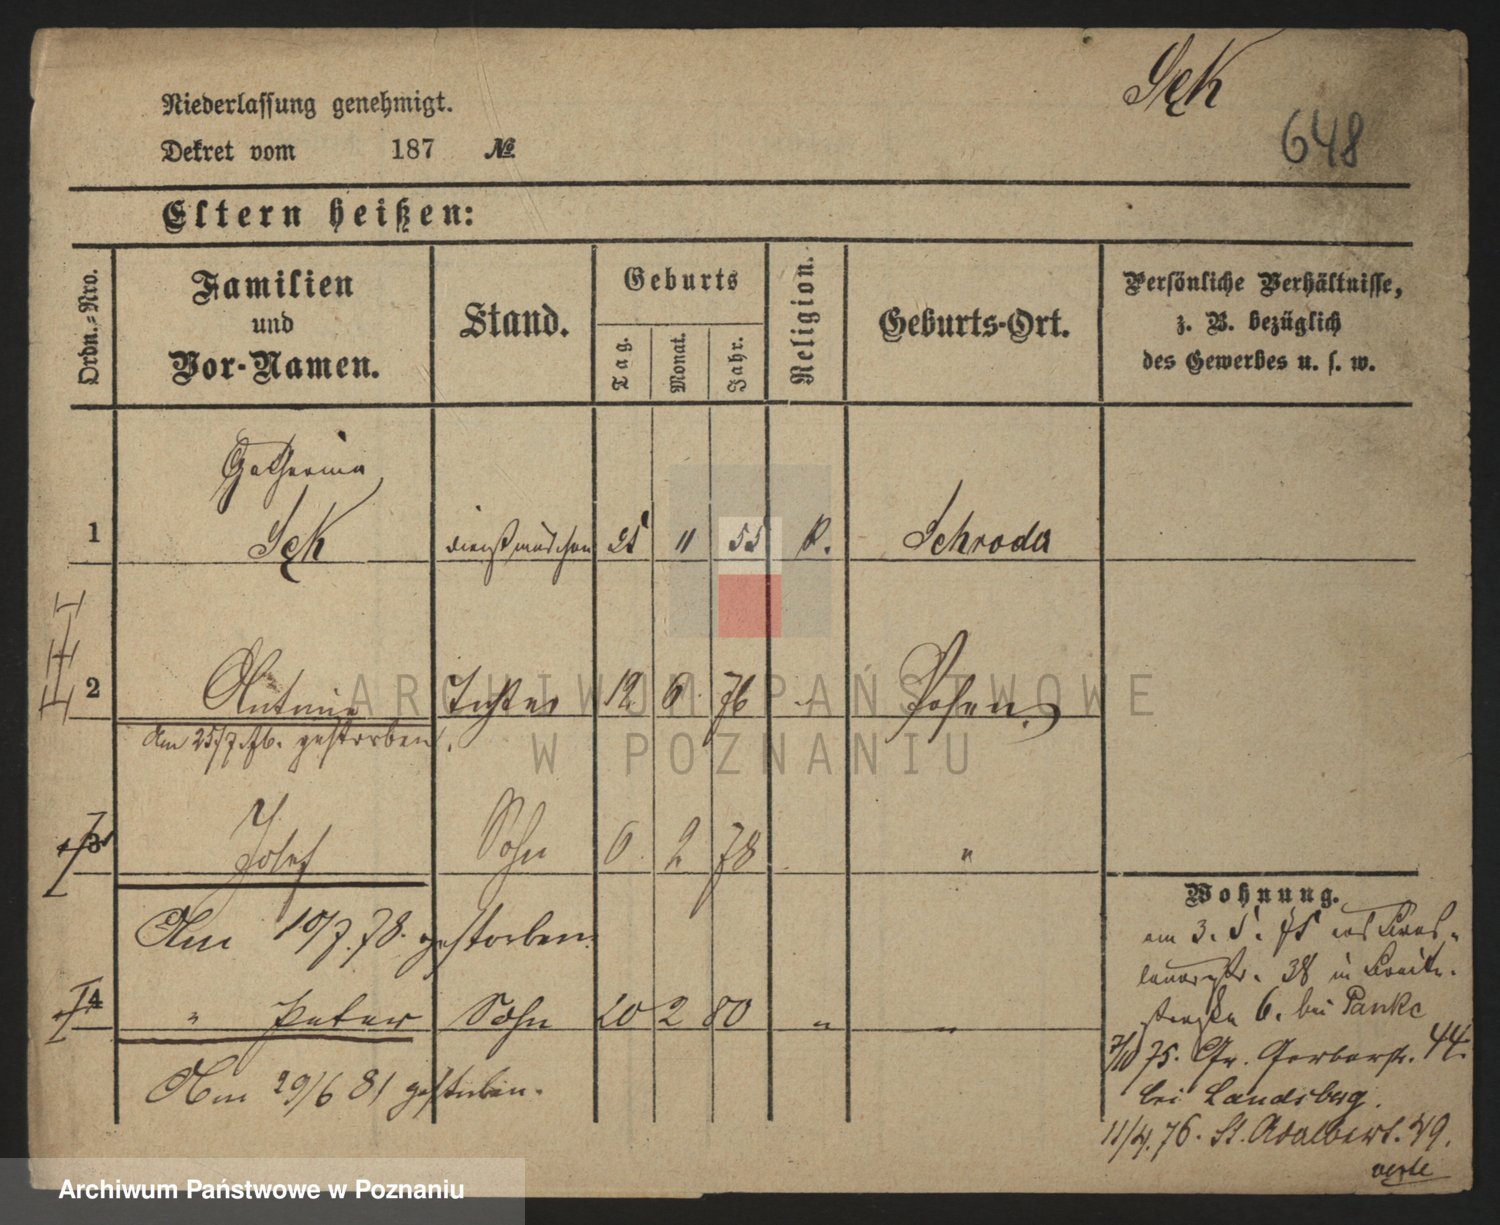 Sęk
648
Niederlassung genehmigt.
Dekret vom 187 №
Eltern heißen:
Ordn.-Nro.
Familien
und
Vor-Namen.
Stand.
Geburts
Tag.
Monat.
Jahr.
Religion.
Geburts-Ort.
Persönliche Verhältnisse,
z. B. bezüglich
des Gewerbes u. s. w.
Catharina
1 Sęk Dienstmädchen 25 11 55 K. Schroda
2 Antonie Tochter 12 6 76 Posen
Am 25/7.76. gestorben.
3 Josef Sohn 6 2 78 "
Am 10/7.78. gestorben.
4 " Peter Sohn 20 2 80 " "
Am 29/6 81 gestorben.
Wohnung.
am 3. 5. 75 von Bres-
lauerstr. 38 in Breite-
straße 6. bei Panke
7/10 75. Gr. Gerberstr. 44.
bei Landsberg.
11/4. 76. St. Adalbert. 49.
verte
ARCHIWUM PAŃSTWOWE
W POZNANIU
Archiwum Państwowe w Poznaniu